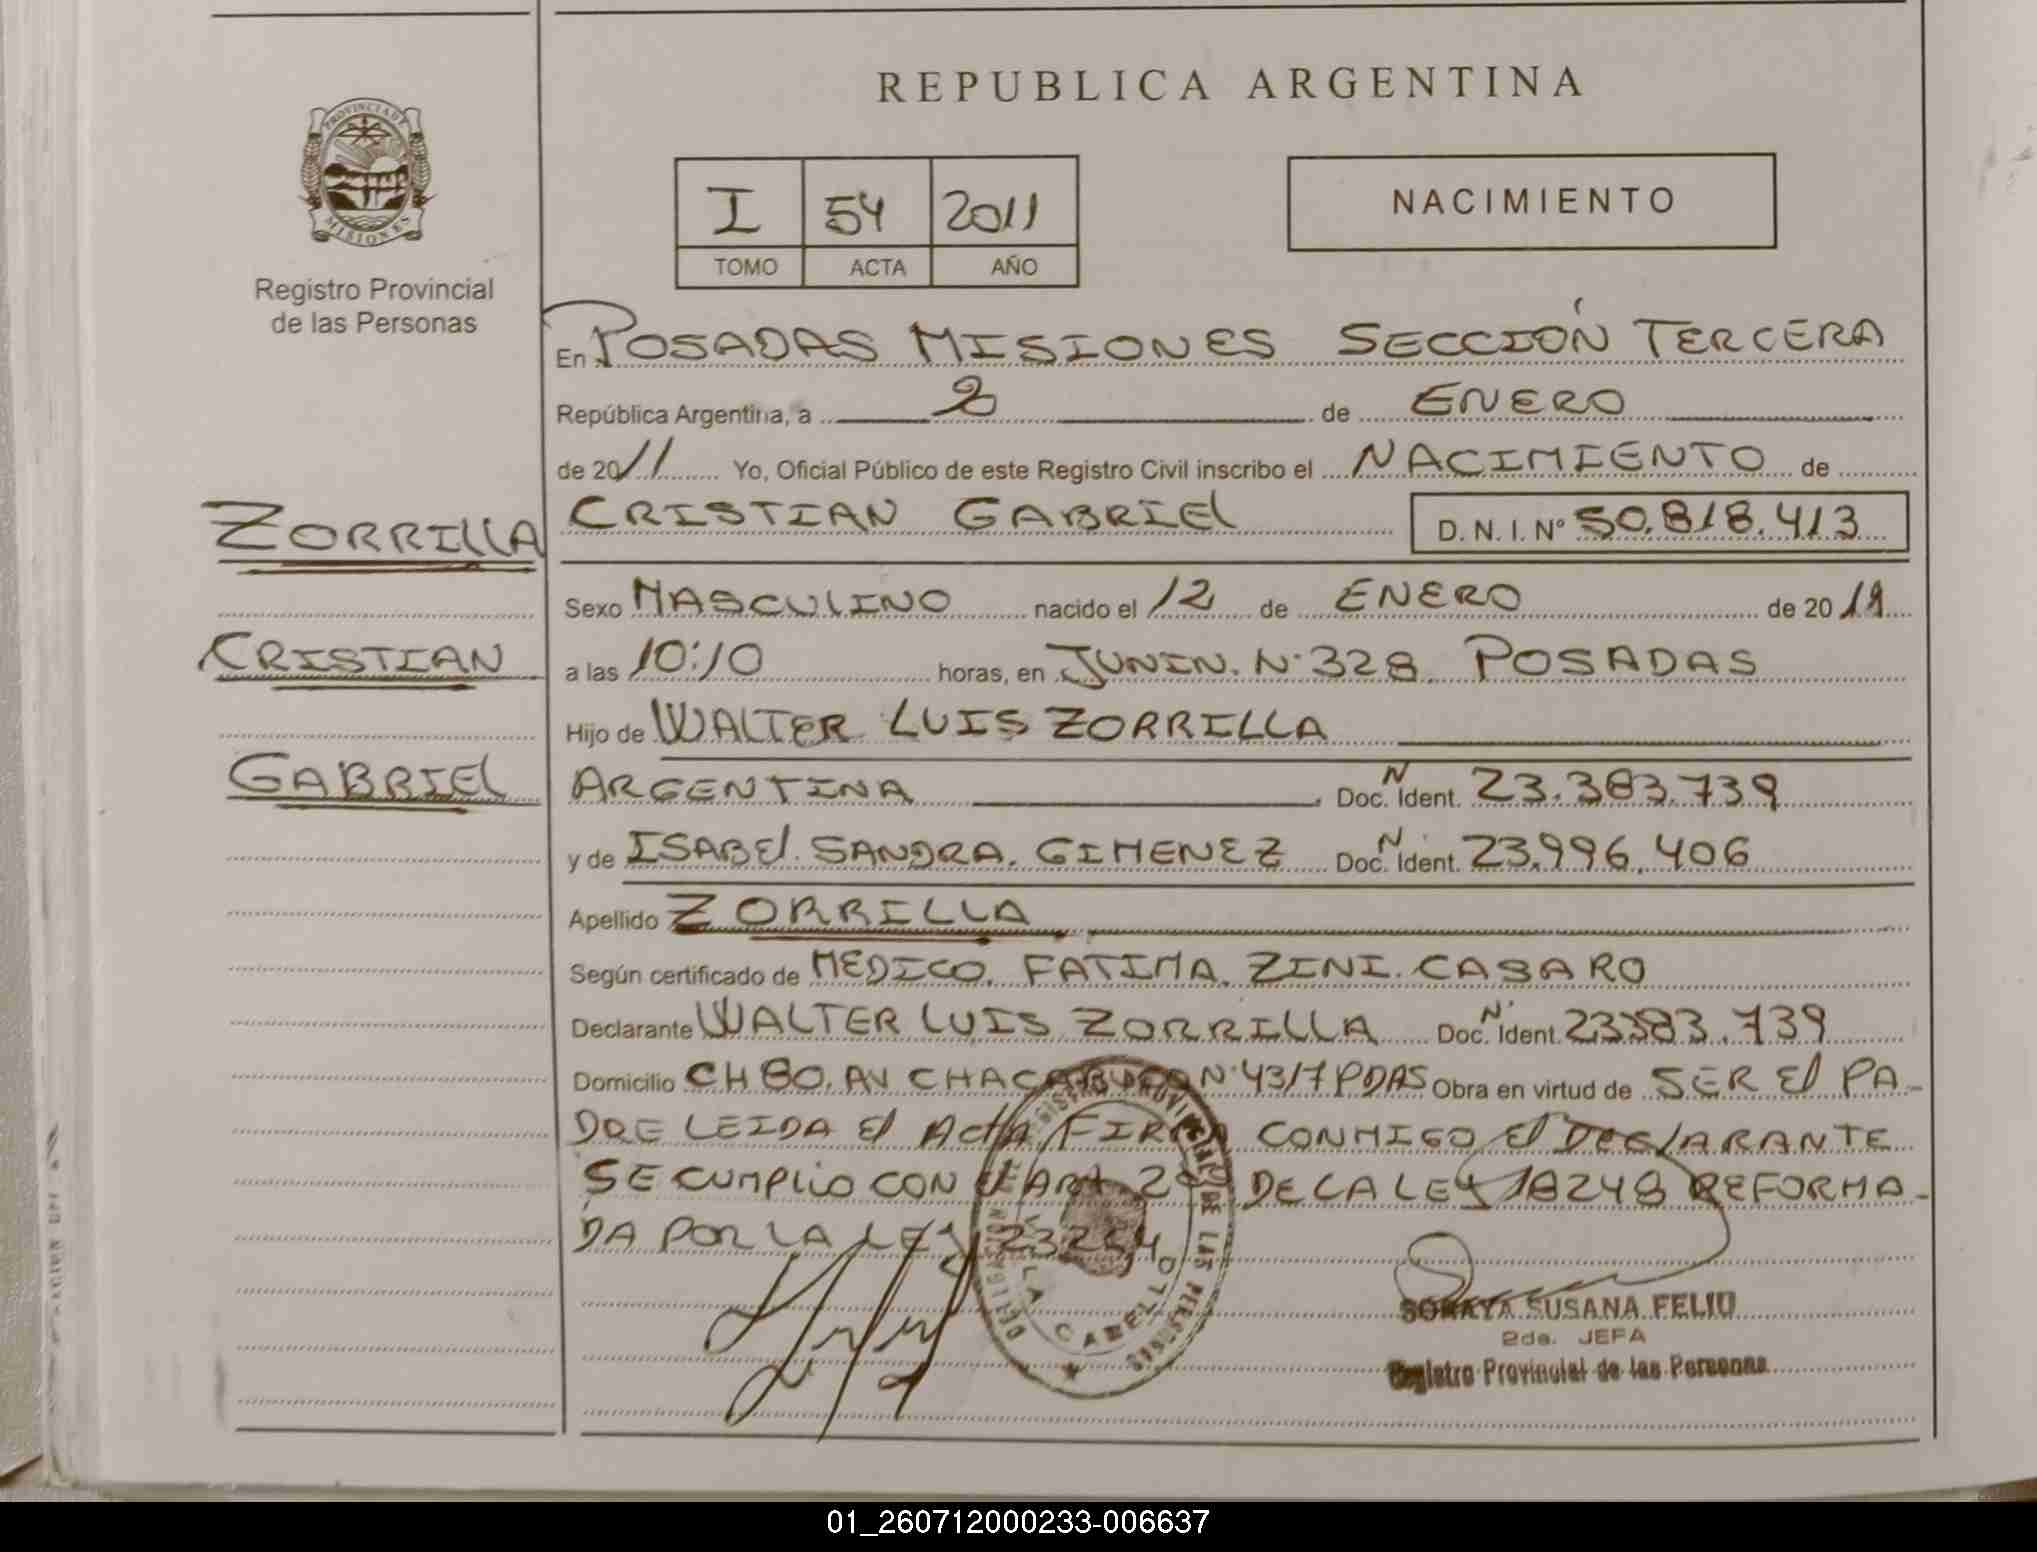 REPUBLICA ARGENTINA
PROVINCIA DE
MISIONES
Registro Provincial
de las Personas
NACIMIENTO
I 54 2011
TOMO ACTA AÑO
En POSADAS MISIONES SECCIÓN TERCERA
República Argentina, a de ENERO
de 2011 Yo, Oficial Público de este Registro Civil inscribo el NACIMIENTO de
ZORRILLA
CRISTIAN GABRIEL D. N. I. Nº 50.818.413
Sexo MASCULINO nacido el 12 de ENERO de 2011
CRISTIAN
a las 10:10 horas, en JUNIN. N° 328. POSADAS
Hijo de WALTER LUIS ZORRILLA
GABRIEL
ARGENTINA Doc. N Ident. 23.383.739
y de ISABEL. SANDRA. GIMENEZ Doc. N Ident. 23.996.406
Apellido ZORRILLA
Según certificado de MEDICO. FATIMA. ZINI. CASARO
Declarante WALTER LUIS ZORRILLA Doc. N° Ident. 23383.739
Domicilio CH 80. AV CHACABUCO N° 4317 PDAS Obra en virtud de SER El PA-
DRE LEIDA El ActA FIRMA CONMIGO El DEClARANTE
SE CUMPLIO CON El ARt DE LA LEY 18248 REFORMA-
DA POR LA LEY
DELEGACION VILLA CABELLO
REGISTRO PROVINCIAL DE LAS PERSONAS
SORAYA SUSANA FELIU
2da. JEFA
Registro Provincial de las Personas
01_260712000233-006637